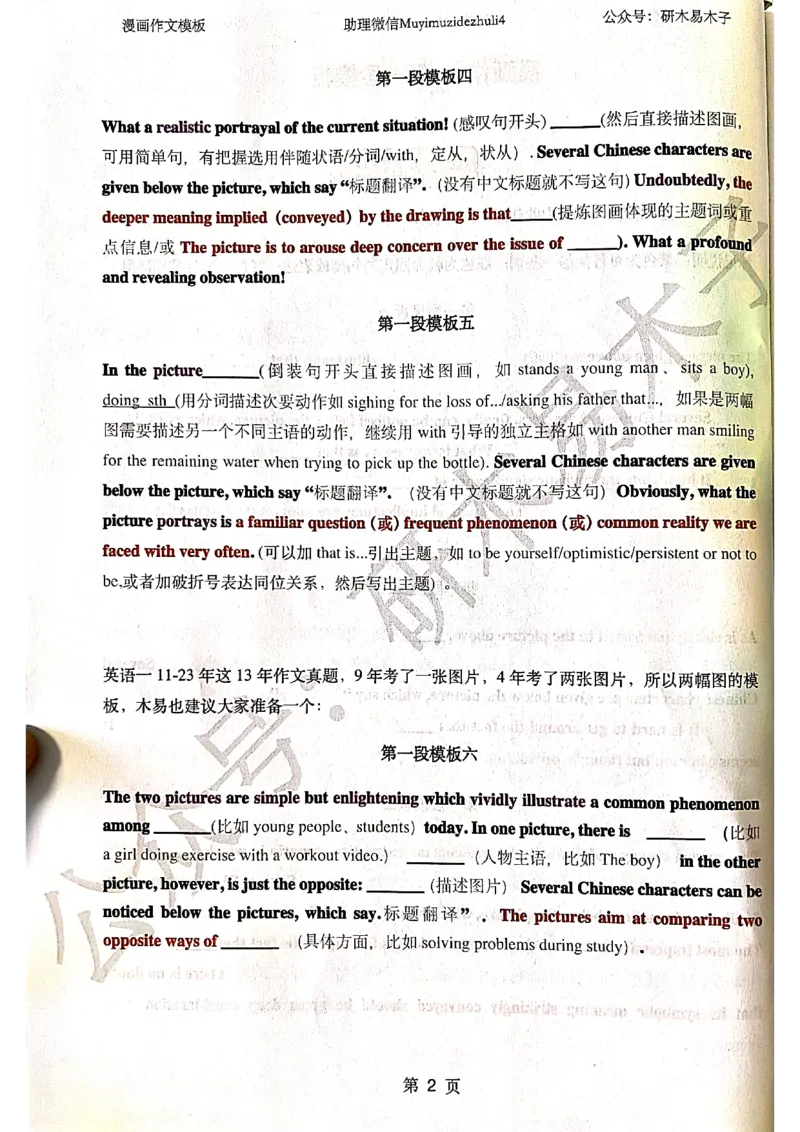 漫画作文模板 助理微信Muyimuzidezhuli4 公众号：研木易木子
第一段模板四
What a realistic portrayal of the current situation! (感叹句开头) ______(然后直接描述图画，
可用简单句，有把握选用伴随状语/分词/with，定从，状从）. Several Chinese characters are
given below the picture, which say “标题翻译”. (没有中文标题就不写这句) Undoubtedly, the
deeper meaning implied (conveyed) by the drawing is that_____(提炼图画体现的主题词或重
点信息/或 The picture is to arouse deep concern over the issue of ______). What a profound
and revealing observation!
第一段模板五
In the picture______(倒装句开头直接描述图画，如 stands a young man、sits a boy),
doing sth (用分词描述次要动作如 sighing for the loss of.../asking his father that...，如果是两幅
图需要描述另一个不同主语的动作，继续用 with 引导的独立主格如 with another man smiling
for the remaining water when trying to pick up the bottle). Several Chinese characters are given
below the picture, which say “标题翻译”. （没有中文标题就不写这句） Obviously, what the
picture portrays is a familiar question (或) frequent phenomenon (或) common reality we are
faced with very often. (可以加 that is...引出主题，如 to be yourself/optimistic/persistent or not to
be,或者加破折号表达同位关系，然后写出主题）。
英语一 11-23 年这 13 年作文真题，9 年考了一张图片，4 年考了两张图片，所以两幅图的模
板，木易也建议大家准备一个：
第一段模板六
The two pictures are simple but enlightening which vividly illustrate a common phenomenon
among ______(比如 young people、students）today. In one picture, there is ______ (比如
a girl doing exercise with a workout video.) ______ （人物主语，比如 The boy） in the other
picture, however, is just the opposite: ______ （描述图片） Several Chinese characters can be
noticed below the pictures, which say.标题翻译”. The pictures aim at comparing two
opposite ways of ______ （具体方面，比如 solving problems during study）.
公众号：研木易木子
第 2 页